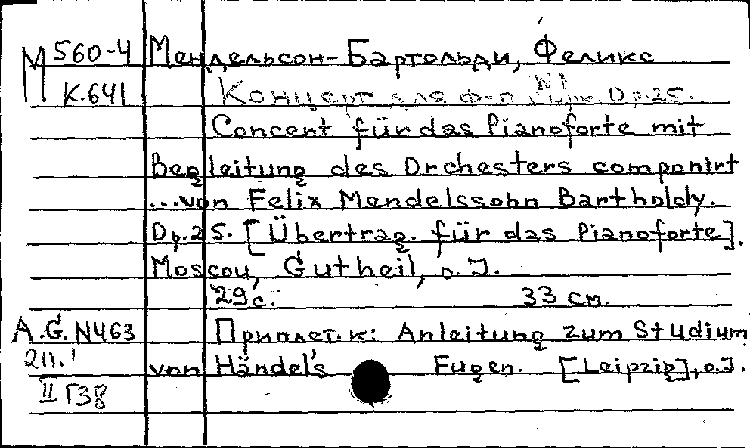 М 560-4 Мендельсон-Бартольди, Феликс
К.641 Концерт для ф-п. №1, Op.25.
Concert für das Pianoforte mit
Begleitung des Orchesters componirt
...von Felix Mendelssohn Bartholdy.
Op.25. [Übertrag. für das Pianoforte].
Moscou, Gutheil, o. J.
29 с. 33 см.
A.G. N463 Приплет. к: Anleitung zum Studium
2п. von Händel's Fugen. [Leipzig], o.J.
II Г38